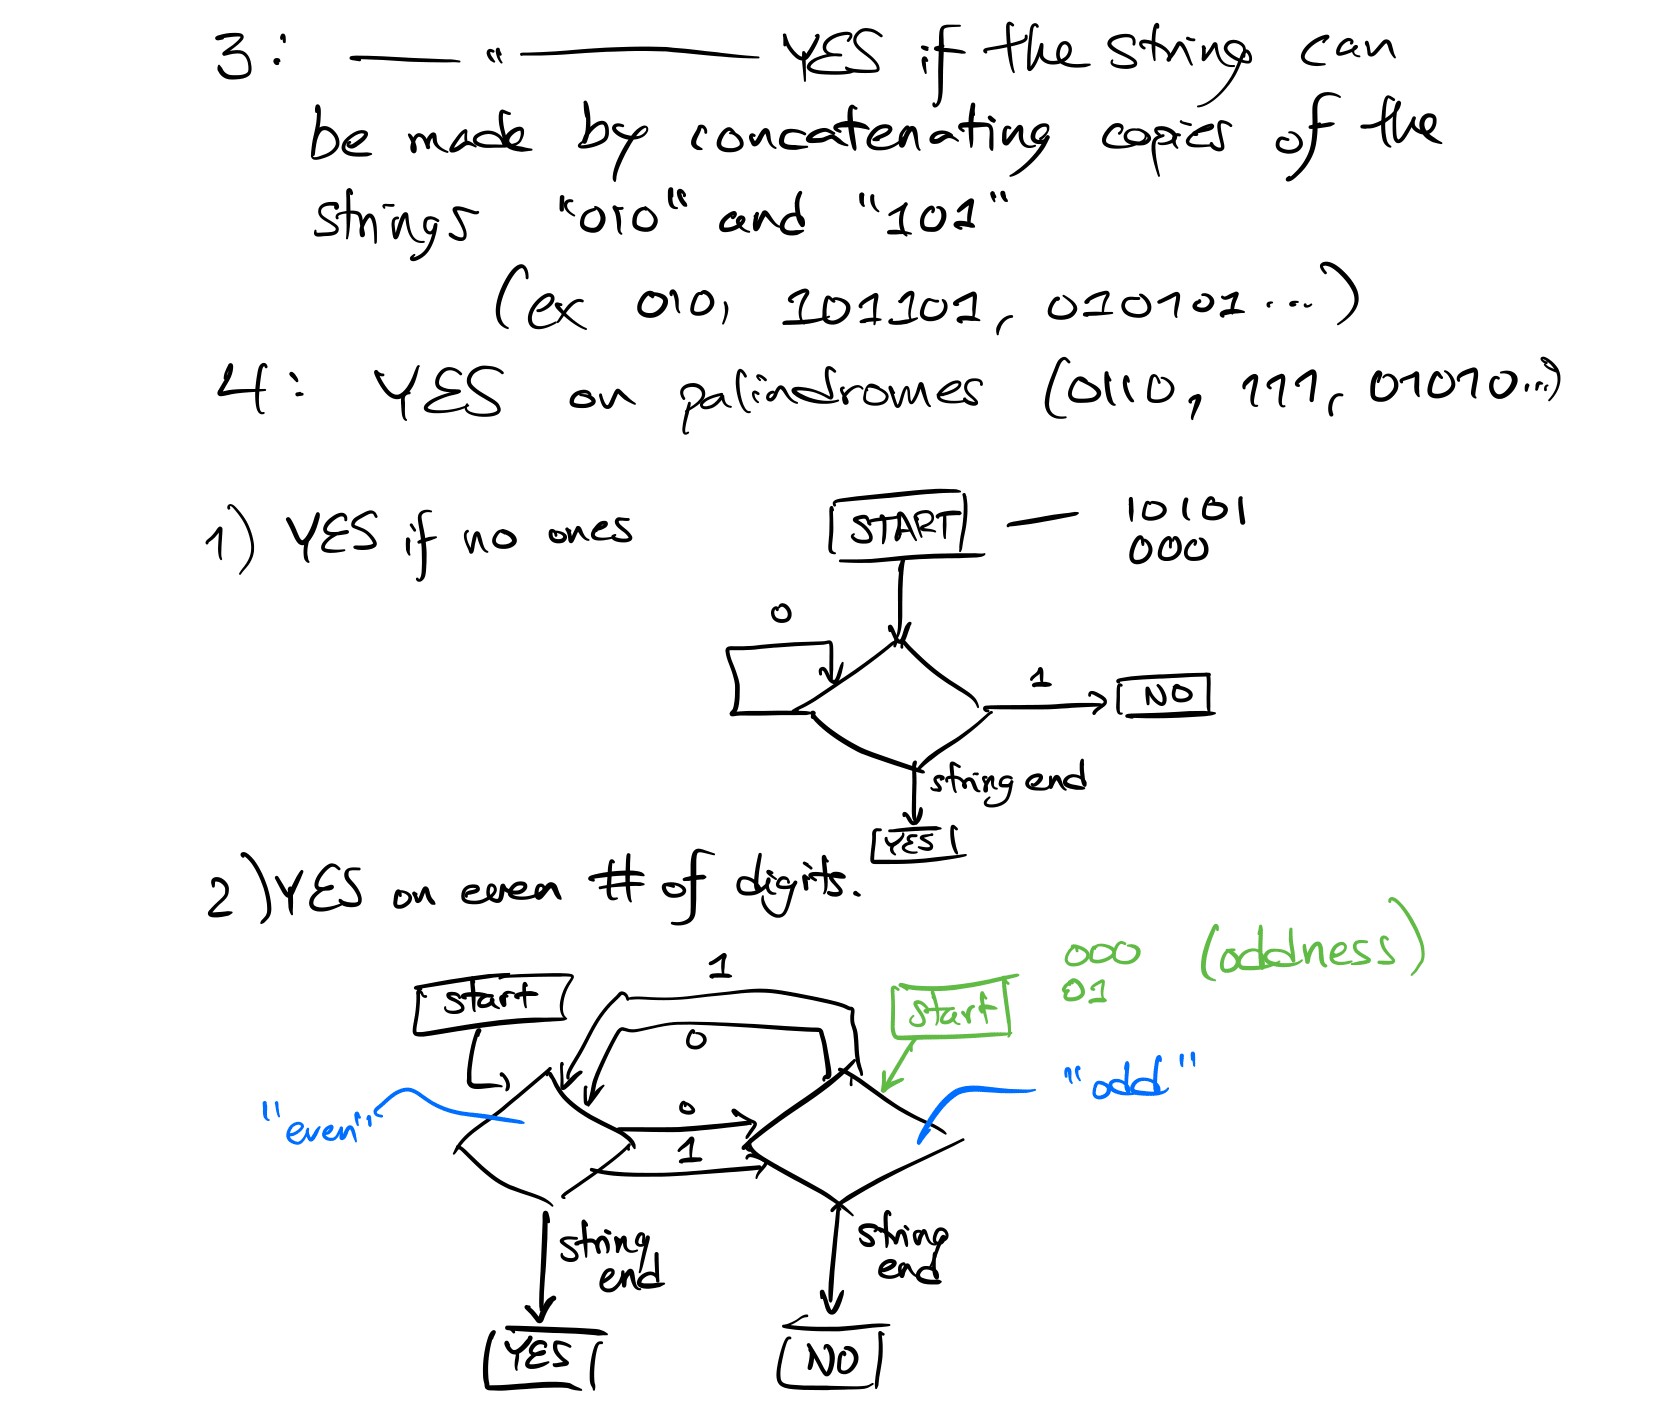 3: — " — YES if the string can
be made by concatenating copies of the
strings "010" and "101"
(ex 010, 101101, 010101...)
4: YES on palindromes (0110, 111, 01010...)
1) YES if no ones
START — 10101
000
0
1
NO
string end
YES
2) YES on even # of digits.
000 (oddness)
01
1
start
start
0
"odd"
"even"
0
1
string
end
string
end
YES
NO